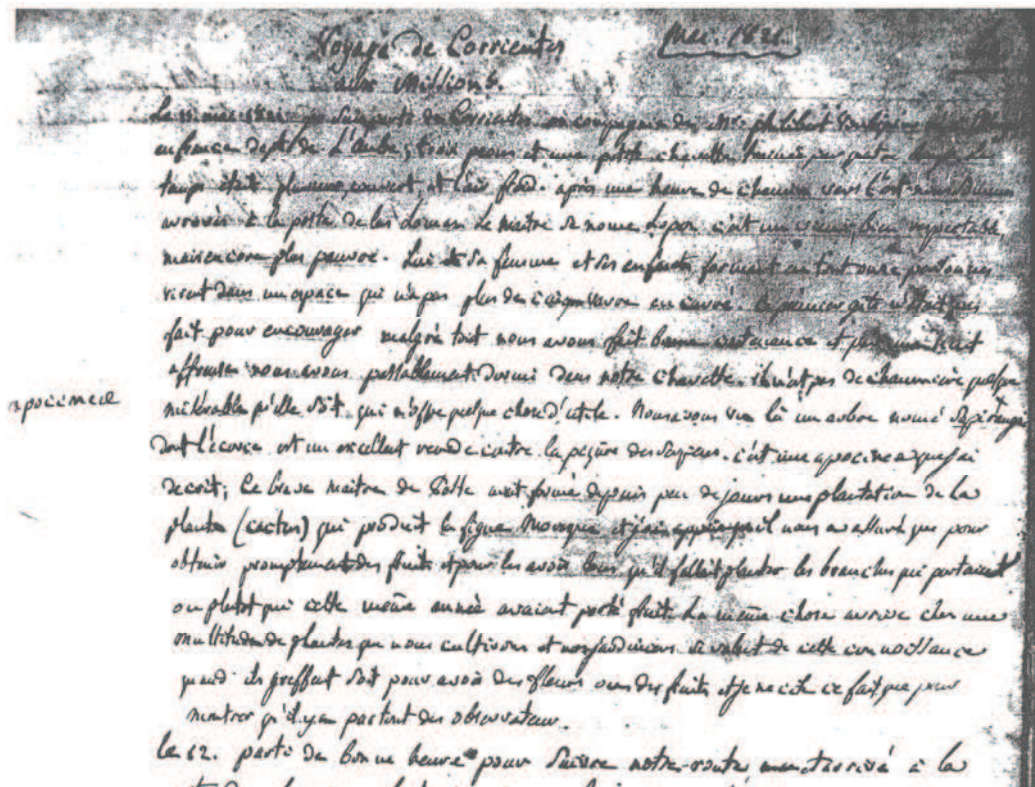 Voyage de Corrientes
aux Missions.
mai. 1821
Le 11 mai 1821 je suis parti de Corrientes en compagnie de Mr. philibert
en france dept. de L'aube, trois peons et une petite charette
temps était pluvieux, couvert et l'air froid. après une heure de chemin vers l'est
arrivés à la poste de las Lomas Le maitre se nome Lopez c'est un vieux bien respectable,
mais encore plus pauvre. Lui et sa femme et ses enfants formant en tout onze personnes
vivent dans un espace qui n'a pas plus de cinq varas en carré. ce premier gîte n'était pas
fait pour encourager malgré tout nous avons fait bonne contenance et par une nuit
affreuse nous avons passablement dormi dans notre charette. il n'est pas de chaumière quelque
apocineae
misérable qu'elle soit qui n'offre quelque chose d'utile. Nous avons vu là un arbre nomé Sapirangi
dont l'écorce est un excellent remède contre la piqûre des serpens. c'est une apocinea que j'ai
decrit; Ce brave maitre de Poste avait formé depuis peu de jours une plantation de la
plante (cactus) qui produit la figue Moresque et il nous a assuré que pour
obtenir promptement des fruits et pour les avoir bons qu'il fallait planter les branches qui portaient
ou plutot qui cette même année avaient porté fruit. La même chose arrive chez une
multitude de plantes que nous cultivons et nos jardiniers se valent de cette connoissance
quand ils greffent soit pour avoir des fleurs ou des fruits et je ne cite ce fait que pour
montrer qu'il y a partout des observateurs.
le 12. parti de bonne heure pour suivre notre route, arrivé à la